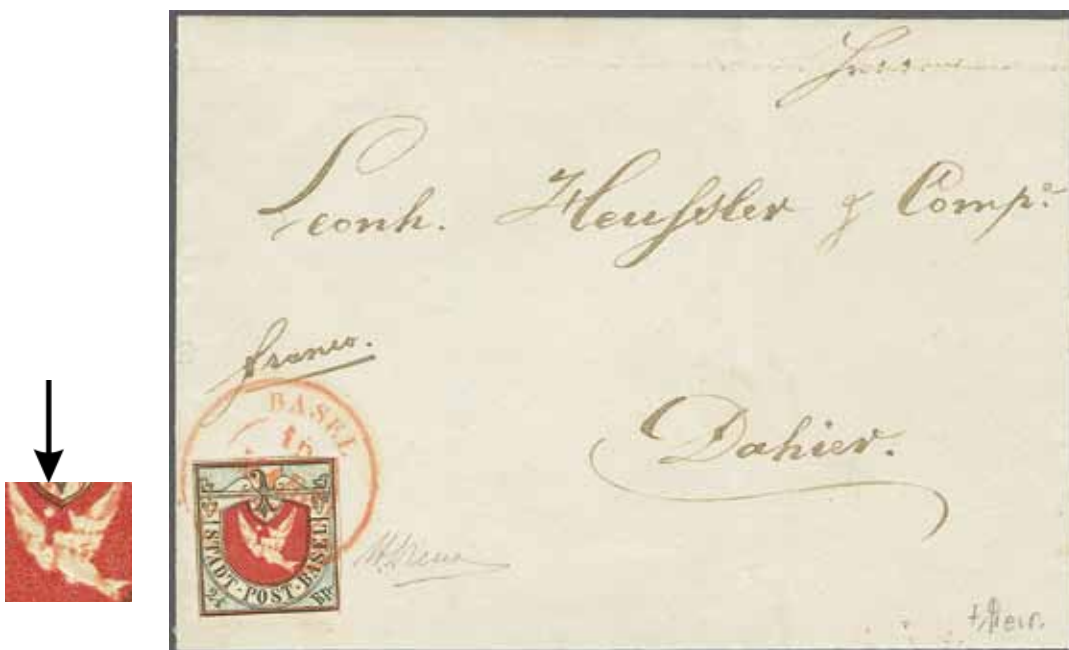 Leonh. Heussler & Comp.
franco.
BASEL
Dahier.
STADT-POST-BASEL
2½ RP.